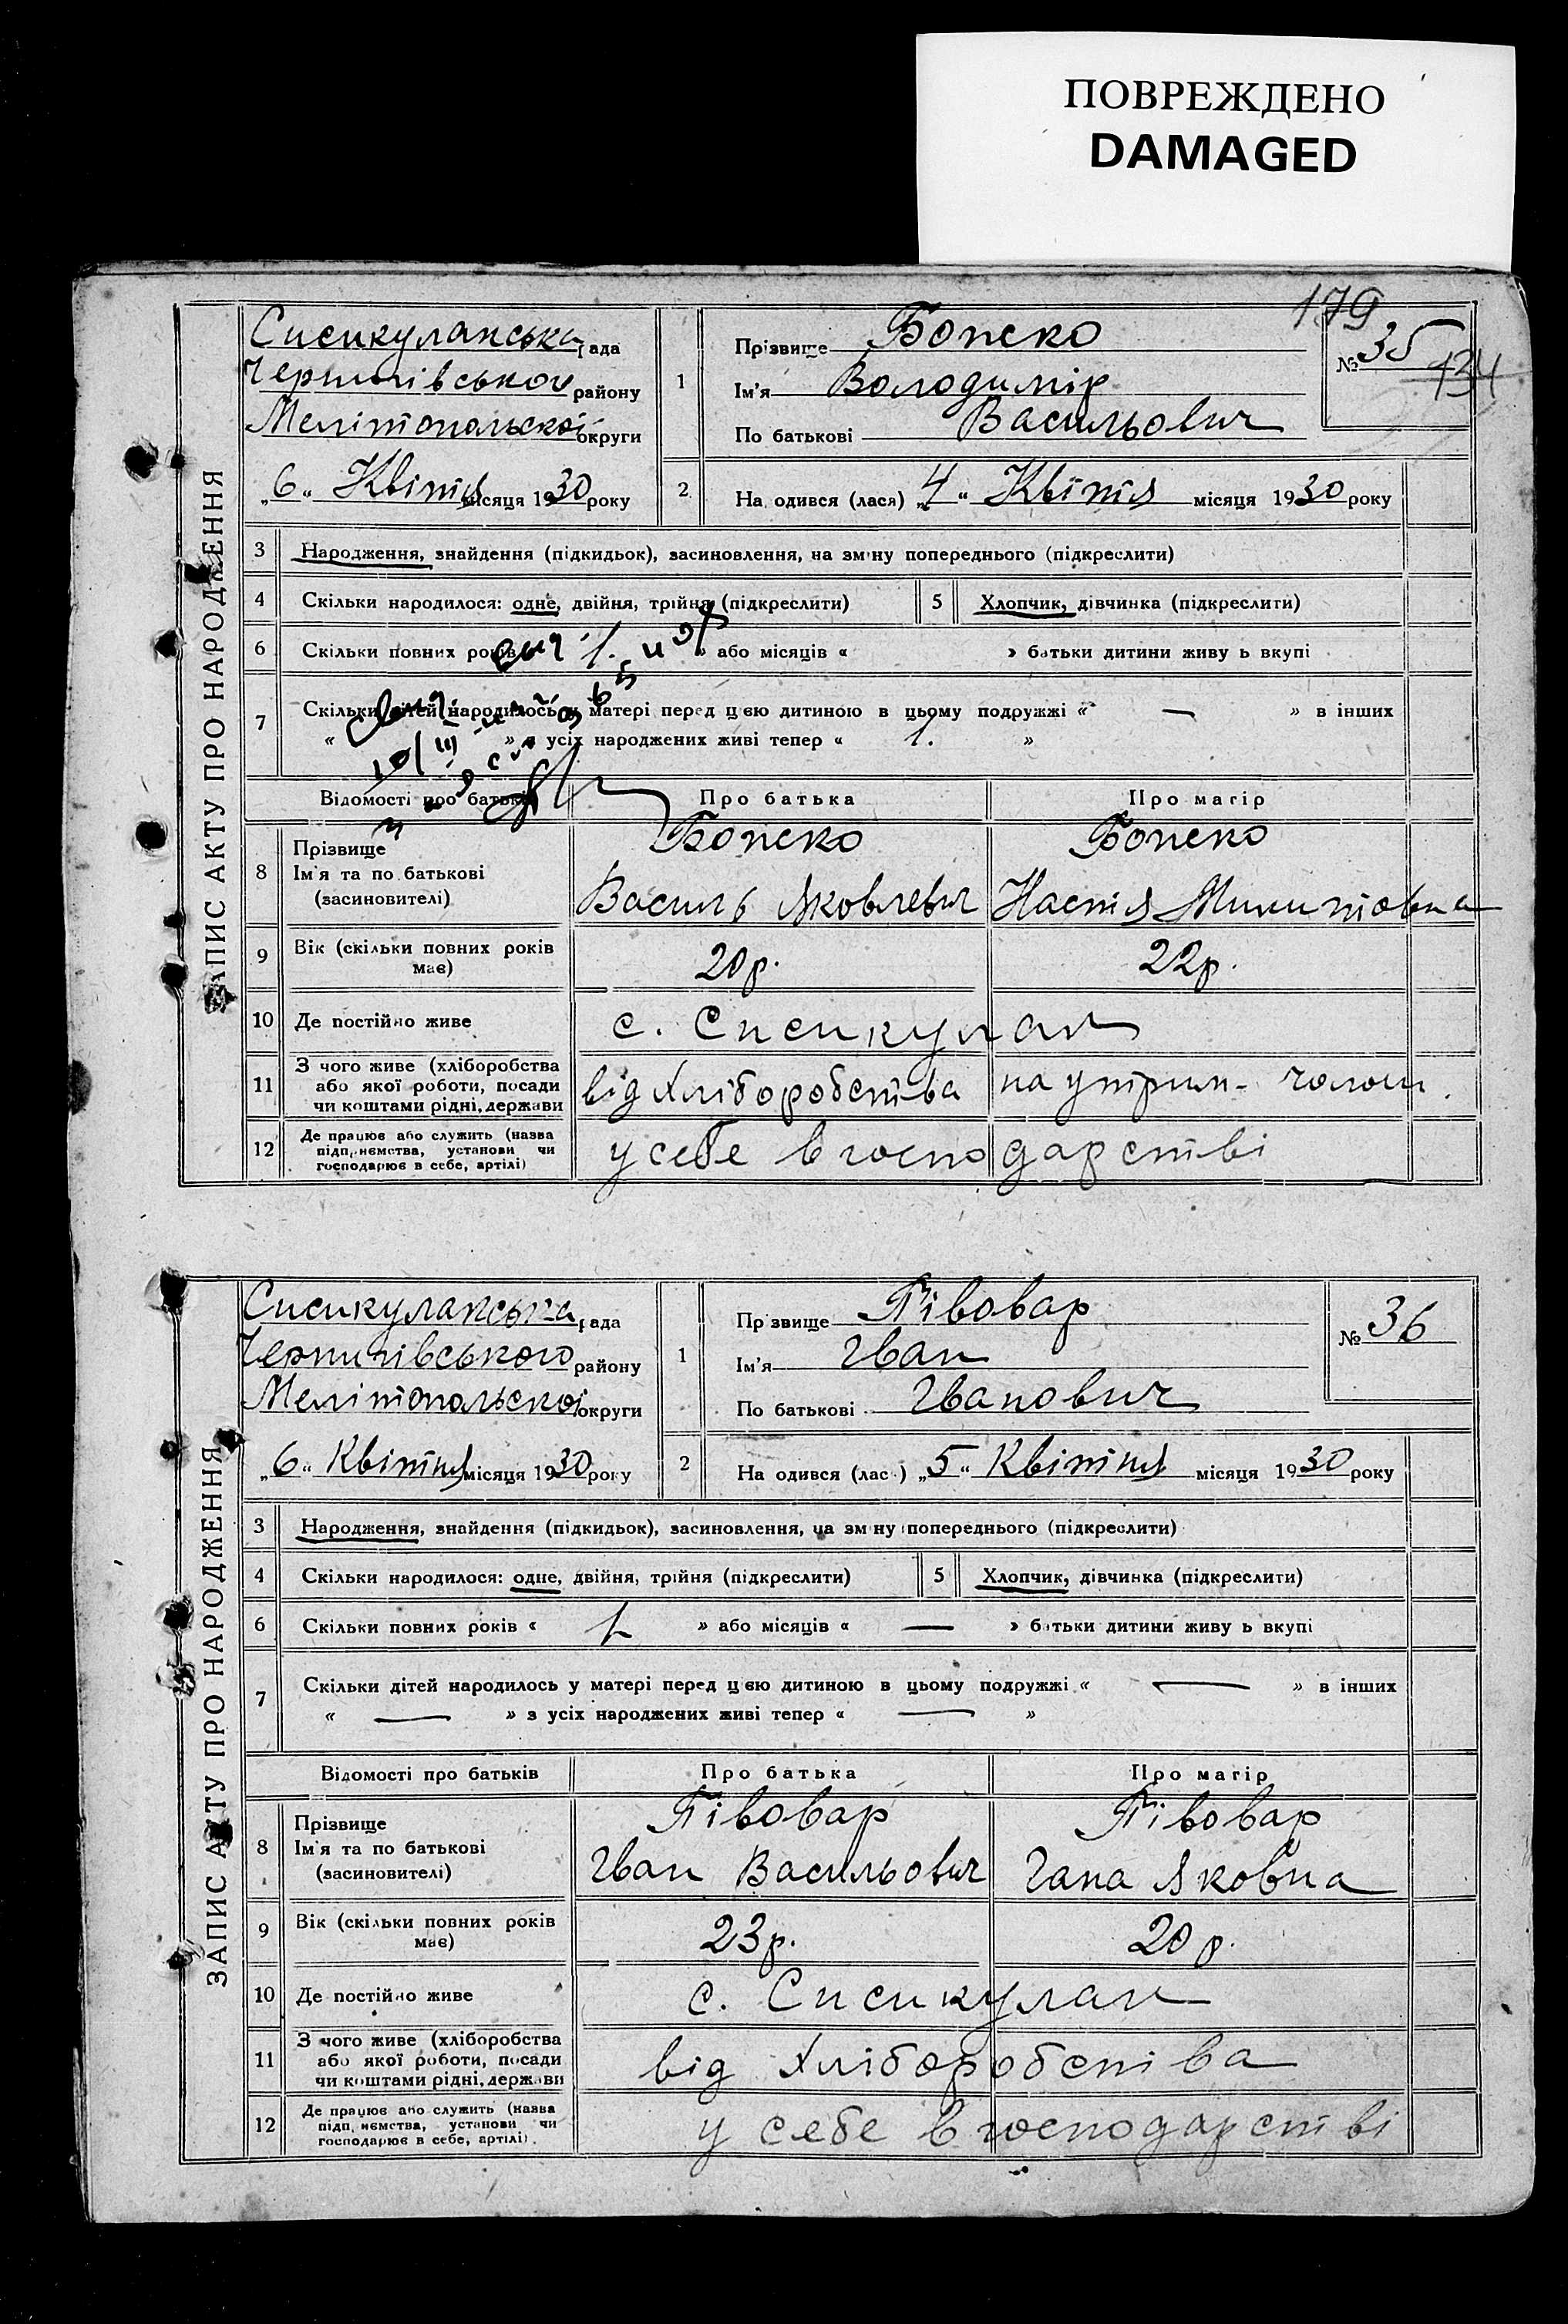 ПОВРЕЖДЕНО
DAMAGED
179
ЗАПИС АКТУ ПРО НАРОДЖЕННЯ
Сисикулакська рада
району
Мелітопольскої округи
„6“ Квітня місяця 1930 року
1
Прізвище Бопско
Ім'я Володимір
По батькові Васильович
№ 35
134
2
На одився (лася) „4“ Квітня місяця 1930 року
3 Народження, знайдення (підкидьок), засиновлення, на зміну попереднього (підкреслити)
4 Скільки народилося: одне, двійня, трійня (підкреслити)
5 Хлопчик, дівчинка (підкреслити)
6 Скільки повних років 1. » або місяців « » батьки дитини живу ь вкупі
7 Скільки дітей народилось у матері перед цією дитиною в цьому подружжі « — » в інших
« » з усіх народжених живі тепер « 1. »
Відомості про батьків Про батька Про матір
8 Прізвище
Ім'я та по батькові
(засиновителі)
Бопско
Василь Яковлевич
Бопско
Настя Микитовна
9 Вік (скільки повних років має) 20р. 22р.
10 Де постійно живе с. Сисикулак
11 З чого живе (хліборобства
або якої роботи, посади
чи коштами рідні, держави
від хліборобства на утрим- чолов.
12 Де працює або служить (назва
підприємства, установи чи
господарює в себе, артілі)
у себе в господарстві
ЗАПИС АКТУ ПРО НАРОДЖЕННЯ
Сисикулакська рада
Чернигівського району
Мелітопольскої округи
„6“ Квітня місяця 1930 року
1
Прізвище Півовар
Ім'я Іван
По батькові Іванович
№ 36
2
На одився (лас ) „5“ Квітня місяця 1930 року
3 Народження, знайдення (підкидьок), засиновлення, на зміну попереднього (підкреслити)
4 Скільки народилося: одне, двійня, трійня (підкреслити)
5 Хлопчик, дівчинка (підкреслити)
6 Скільки повних років « 1 » або місяців « — » батьки дитини живу ь вкупі
7 Скільки дітей народилось у матері перед цією дитиною в цьому подружжі « — » в інших
« — » з усіх народжених живі тепер « — »
Відомості про батьків Про батька Про матір
8 Прізвище
Ім'я та по батькові
(засиновителі)
Півовар
Іван Васильович
Півовар
Гана Яковна
9 Вік (скільки повних років має) 23р. 20р.
10 Де постійно живе с. Сисикулак
11 З чого живе (хліборобства
або якої роботи, посади
чи коштами рідні, держави
від хліборобства
12 Де працює або служить (назва
підприємства, установи чи
господарює в себе, артілі)
у себе в господарстві